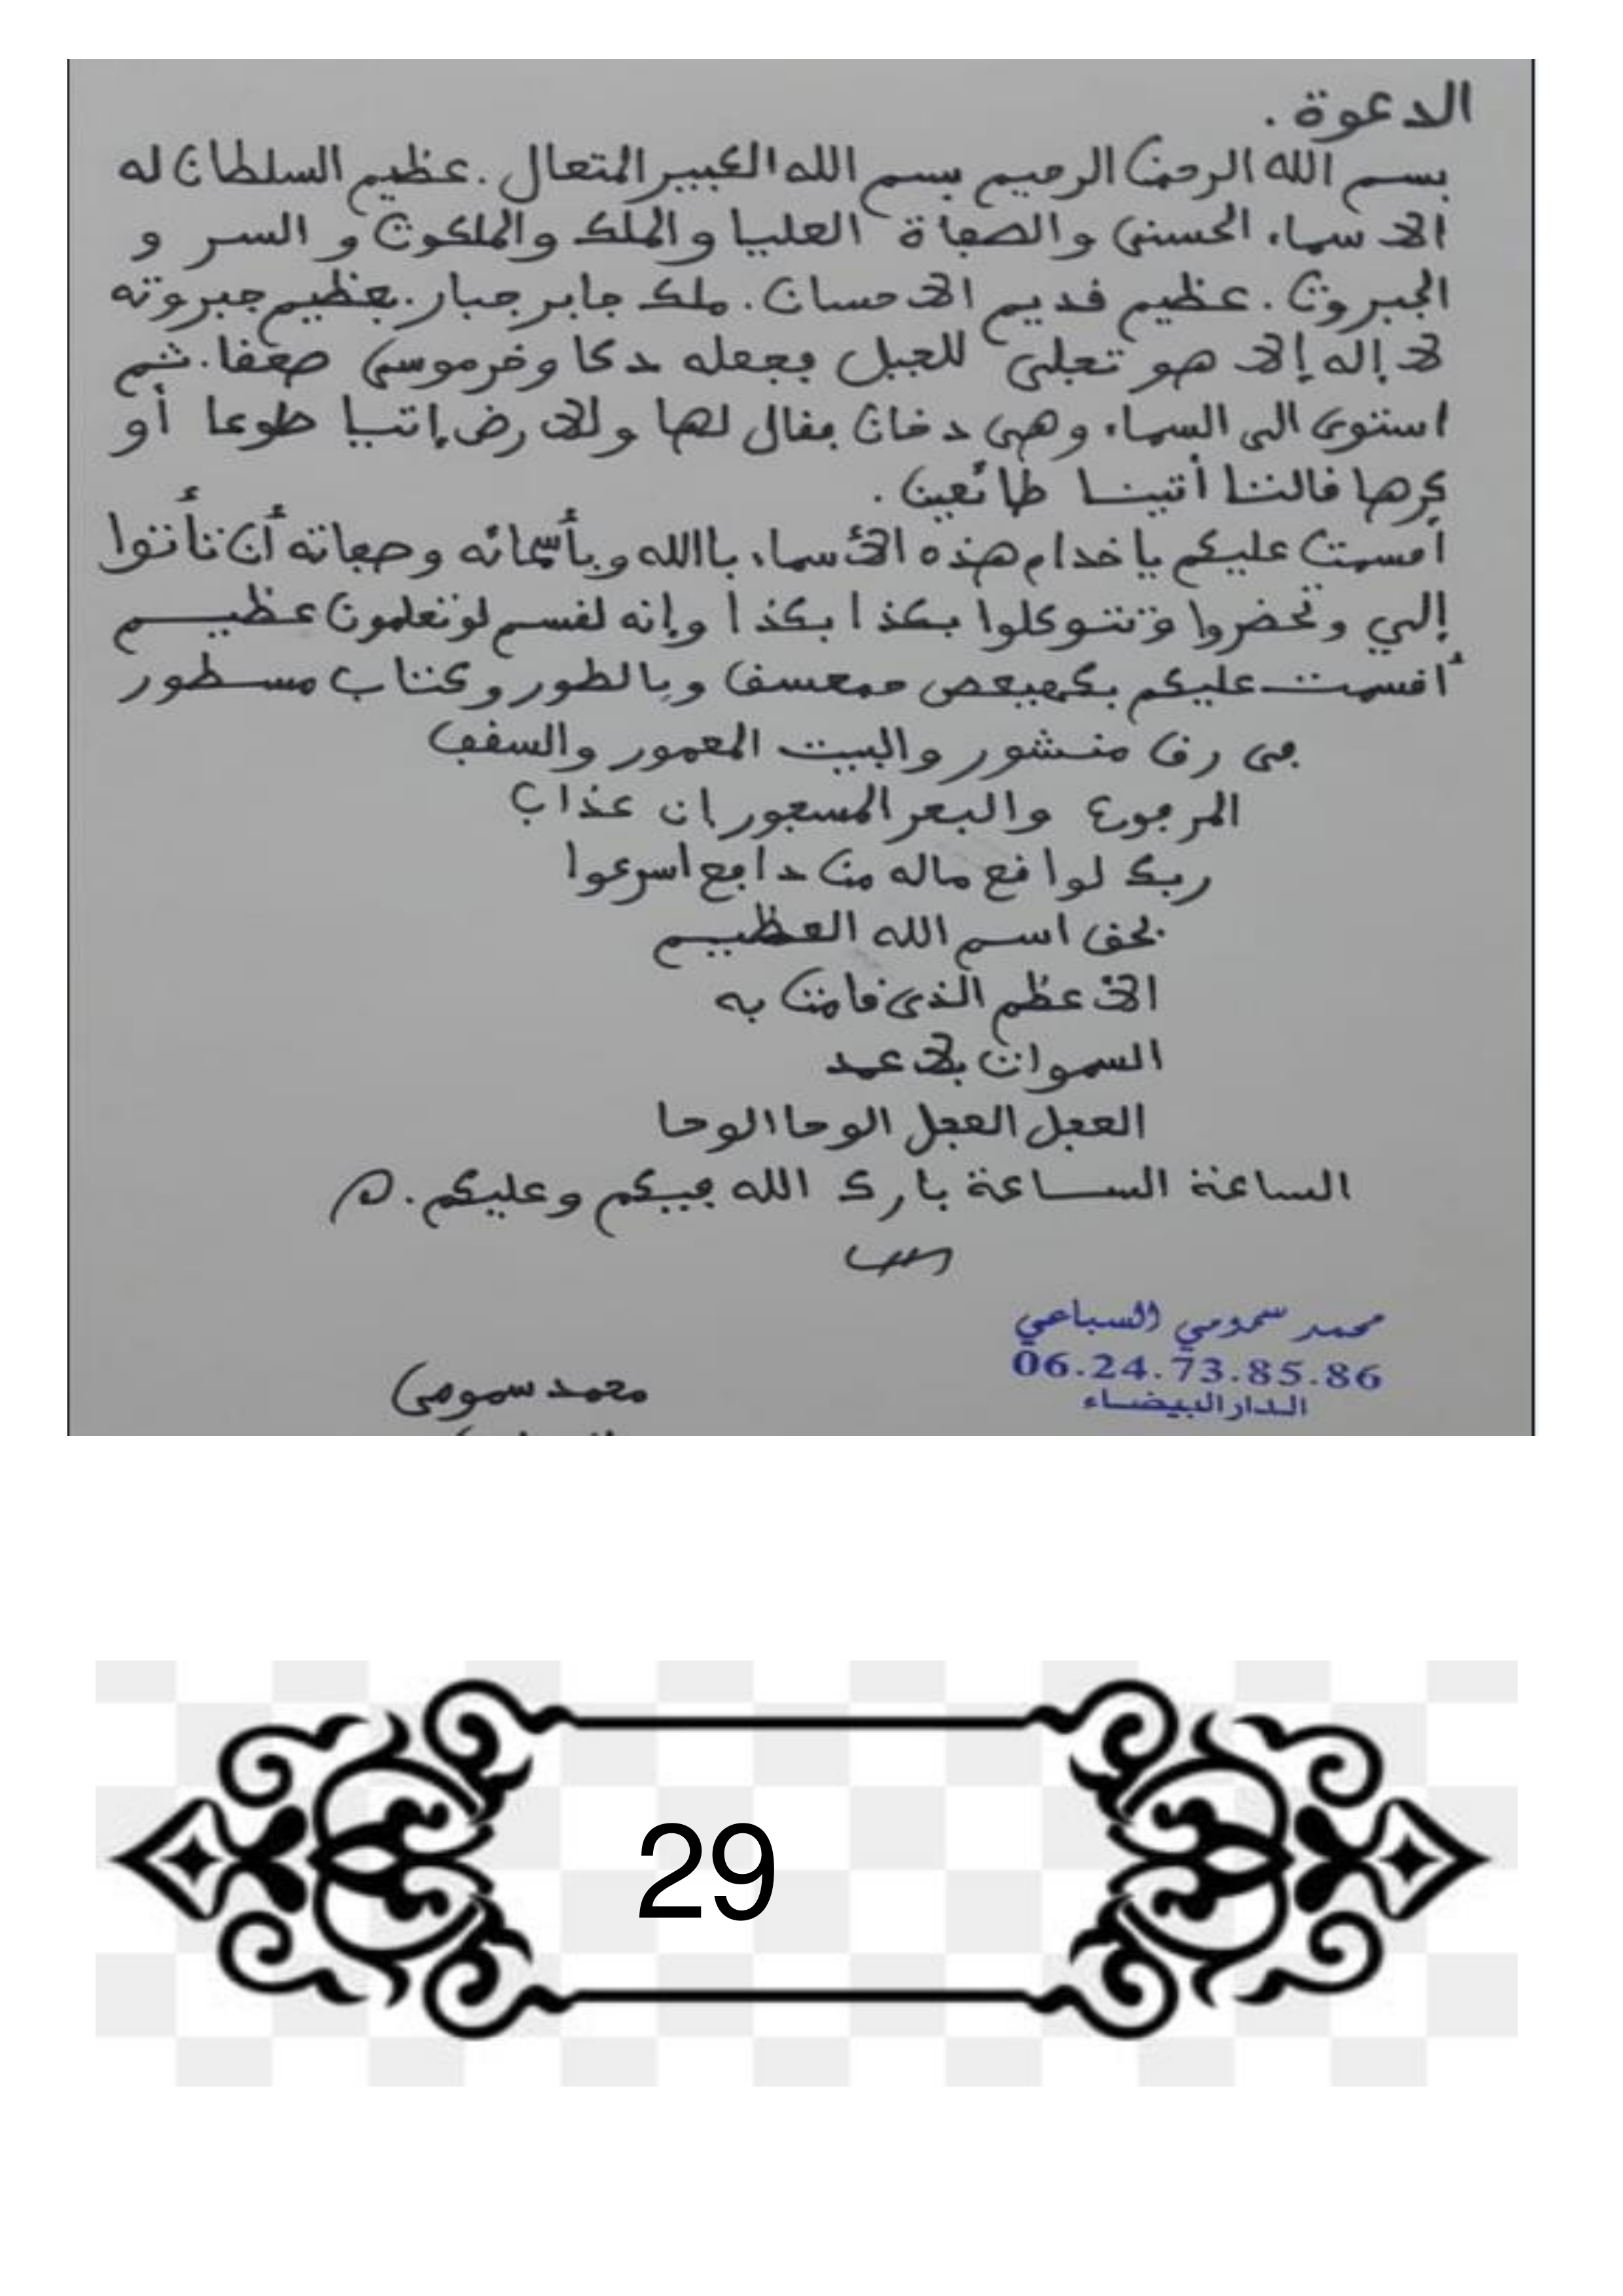 الدعوة .
بسم الله الرحمن الرحيم بسم الله الكبير المتعال . عظيم السلطان له
الاسماء الحسنى والصفاة العليا والملك والملكوت و السر و
الجبروت . عظيم قديم الاحسان . ملك جابر جبار . بعظيم جبروته
لا إله إلا هو تجلى للجبل فجعله دكا وخر موسى صعقا . ثم
استوى الى السماء وهي دخان فقال لها وللارض إتيا طوعا أو
كرها قالتا أتينا طائعين .
أقسمت عليكم يا خدام هذه الأسماء باالله وبأسمائه وصفاته أن تأتوا
إلي وتحضروا وتتوكلوا بكذا بكذا وإنه لقسم لو تعلمون عظيم
أقسمت عليكم بكهيعص حمعسق وبالطور وكتاب مسطور
في رق منشور والبيت المعمور والسقف
المرفوع والبحر المسجور إن عذاب
ربك لواقع ماله من دافع اسرعوا
بحق اسم الله العظيم
الأعظم الذي قامت به
السموات بلا عمد
العجل العجل الوحا الوحا
الساعة الساعة بارك الله فيكم وعليكم .
محمد سمومي السباعي
06.24.73.85.86
الدار البيضاء
محمد سمومي
29